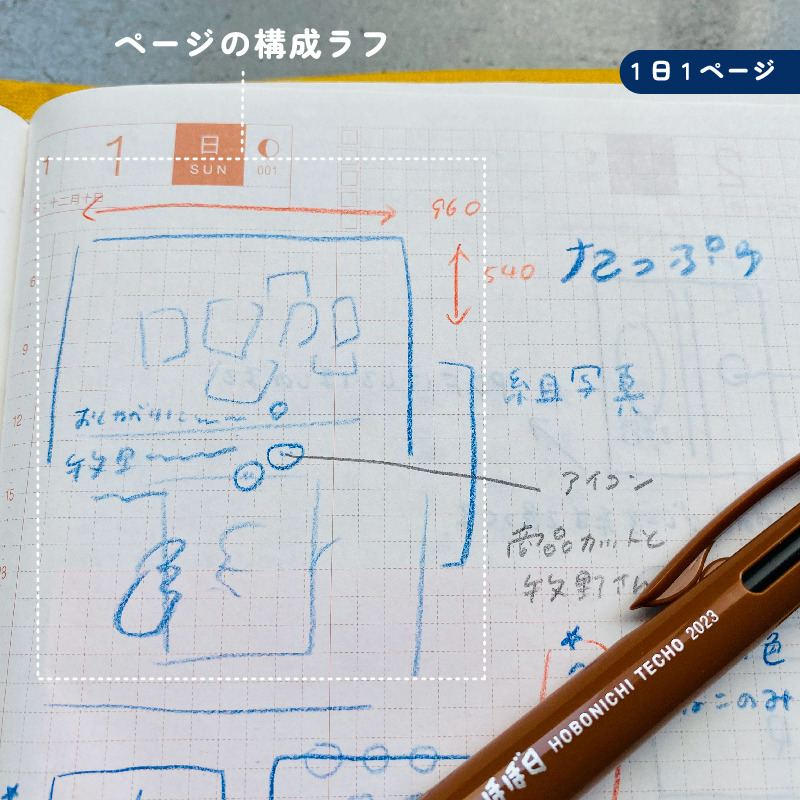 ページの構成ラフ
1日1ページ
1
1
日
SUN
001
十二月十日
960
6
540
たっぷり
9
組写真
12
15
アイコン
商品カットと
牧野さん
色
このみ
HOBONICHI TECHO 2023
ほぼ日